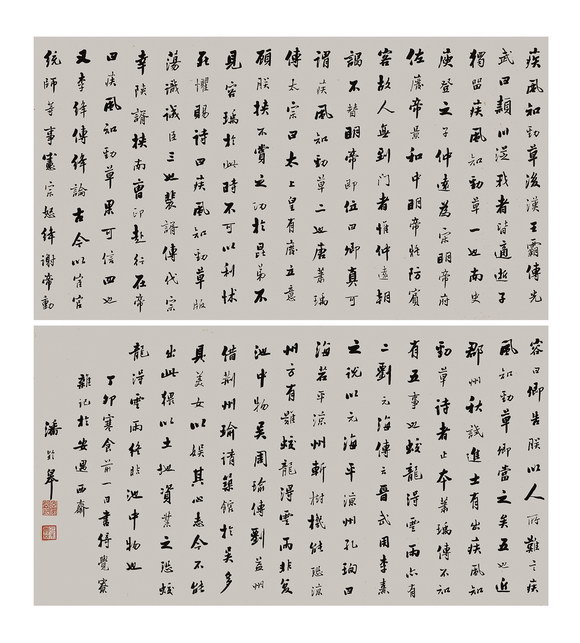 疾風知勁草後漢王霸傳光
武曰潁川從我者皆適逝子
獨留疾風知勁草一也南史
庾登之子仲遠為宗明帝府
佐廢帝景和中明帝疑防賓
客故人無到門者惟仲遠朝
謁不替明帝即位曰卿真可
謂疾風知勁草二也唐蕭瑀
傳太宗曰太上皇有廢立意
顧朕挾不賞之功於昆弟不
見容瑀於此時不可以利怵
死懼賜詩曰疾風知勁草版
蕩識誠臣三也裴諝傳代宗
幸陝諝挾南曹印赴行在帝
曰疾風知勁草果可信四也
又李絳傳絳論古今以宦官
統師等事憲宗怒絳謝帝動
容曰卿告朕以人所難言疾
風知勁草卿當之矣五也近
郡州秋試進士有出疾風知
勁草詩者止本蕭瑀傳不知
有五事也蛟龍得雲雨亦有
二劉元海傳云晉武用李熹
之說以元海平涼州孔恂曰
海若平涼州斬樹機能恐涼
州方有難蛟龍得雲雨非復
池中物吳周瑜傳劉益州
借荊州瑜請築館於吳多
具美女以娛其心志今不能
出此猥以土地資業之恐蛟
龍得雲雨終非池中物也
丁卯寒食前一日書得覺寮
雜記於安思西齋
潘齡皋